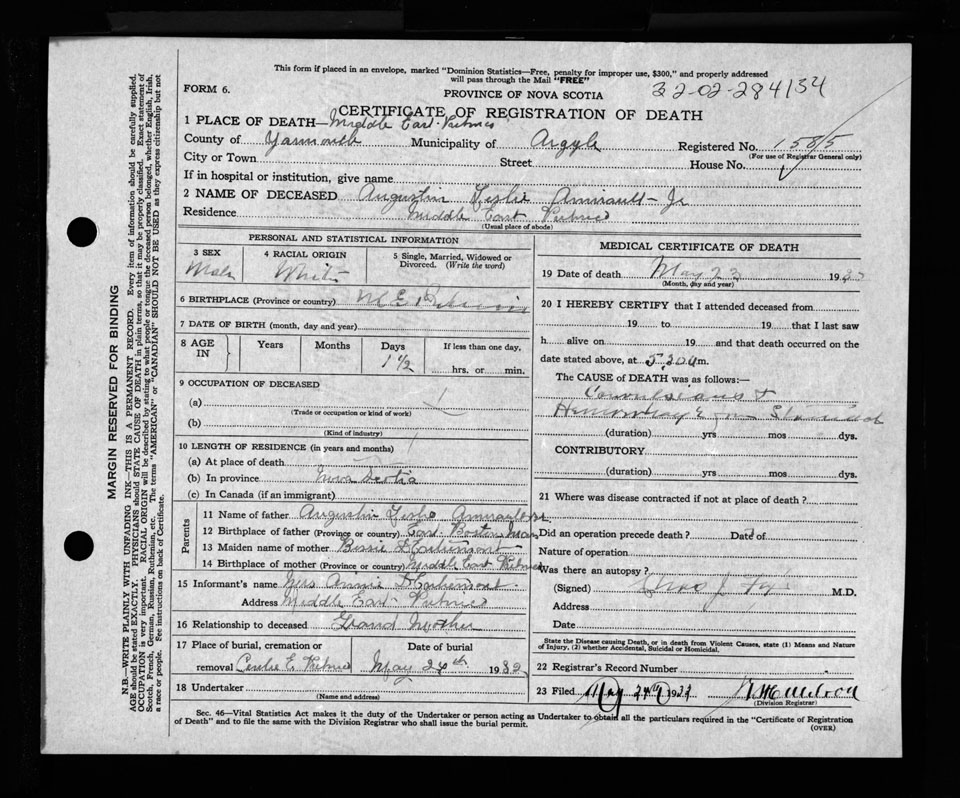 This form if placed in an envelope, marked "Dominion Statistics—Free, penalty for improper use, $300," and properly addressed
will pass through the Mail "FREE"
FORM 6.
PROVINCE OF NOVA SCOTIA
32-02-284134
CERTIFICATE OF REGISTRATION OF DEATH
1 PLACE OF DEATH— Middle East Pubnico
County of Yarmouth Municipality of Argyle Registered No. 1585
(For use of Registrar General only)
City or Town Street House No.
If in hospital or institution, give name
2 NAME OF DECEASED Augustin Leslie Amirault Jr
Residence Middle East Pubnico
(Usual place of abode)
PERSONAL AND STATISTICAL INFORMATION
3 SEX 4 RACIAL ORIGIN 5 Single, Married, Widowed or Divorced. (Write the word)
Male White
6 BIRTHPLACE (Province or country) M. E. Pubnico
7 DATE OF BIRTH (month, day and year)
8 AGE IN Years Months Days If less than one day,
1 1/2 hrs. or min.
9 OCCUPATION OF DECEASED
(a)
(Trade or occupation or kind of work)
(b)
(Kind of industry)
10 LENGTH OF RESIDENCE (in years and months)
(a) At place of death
(b) In province Nova Scotia
(c) In Canada (if an immigrant)
Parents
11 Name of father Augustin Leslie Amirault Sr
12 Birthplace of father (Province or country) East Boston Mass
13 Maiden name of mother D'Entremont
14 Birthplace of mother (Province or country) Middle East Pubnico
15 Informant's name Mrs. Annie D'Entremont
Address Middle East Pubnico
16 Relationship to deceased Grand Mother
17 Place of burial, cremation or Date of burial
removal Centre E. Pubnico May 24th 1932
18 Undertaker
(Name and address)
MEDICAL CERTIFICATE OF DEATH
19 Date of death May 23 1932
(Month, day and year)
20 I HEREBY CERTIFY that I attended deceased from
19 to 19 that I last saw
h alive on 19 and that death occurred on the
date stated above, at 5.20 a m.
The CAUSE of DEATH was as follows:—
Convulsions &
Hemorrhage
(duration) yrs mos dys.
CONTRIBUTORY
(duration) yrs mos dys.
21 Where was disease contracted if not at place of death?
Did an operation precede death? Date of
Nature of operation
Was there an autopsy?
(Signed) M.D.
Address
Date
State the Disease causing Death, or in death from Violent Causes, state (1) Means and Nature
of Injury, (2) whether Accidental, Suicidal or Homicidal.
22 Registrar's Record Number
23 Filed May 24th 1932
(Division Registrar)
Sec. 46—Vital Statistics Act makes it the duty of the Undertaker or person acting as Undertaker to obtain all the particulars required in the "Certificate of Registration
of Death" and to file the same with the Division Registrar who shall issue the burial permit.
(OVER)
MARGIN RESERVED FOR BINDING
N.B.—WRITE PLAINLY WITH UNFADING INK—THIS IS A PERMANENT RECORD. Every item of information should be carefully supplied.
AGE should be stated EXACTLY. PHYSICIANS should STATE CAUSE OF DEATH in plain terms, so that it may be properly classified. Exact statement of
OCCUPATION is very important. RACIAL ORIGIN will be described by stating to what people or tongue the deceased person belonged, whether English, Irish,
Scotch, French, German, Russian, Ruthenian, etc. The terms "AMERICAN" or "CANADIAN" SHOULD NOT BE USED as they express citizenship but not
a race or people. See instructions on back of Certificate.